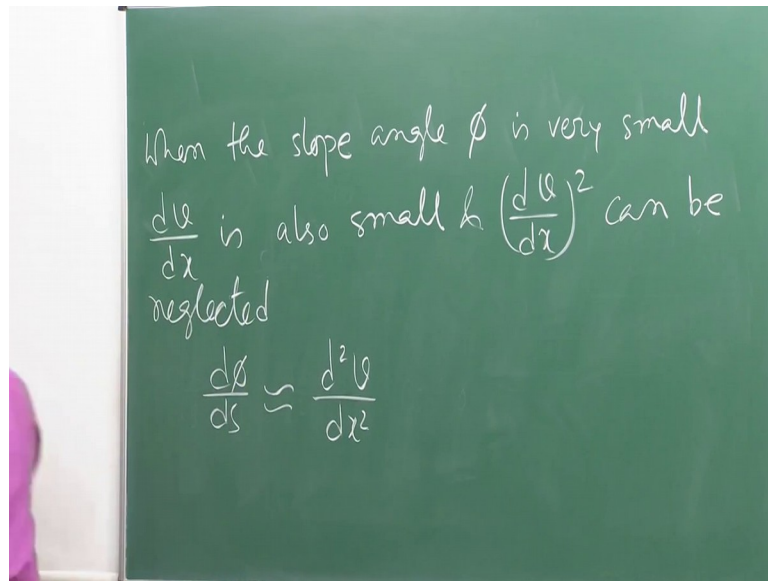 When the slope angle ø is very small
dv/dx is also small & (dv/dx)² can be
neglected
dø/ds ≃ d²v/dx²